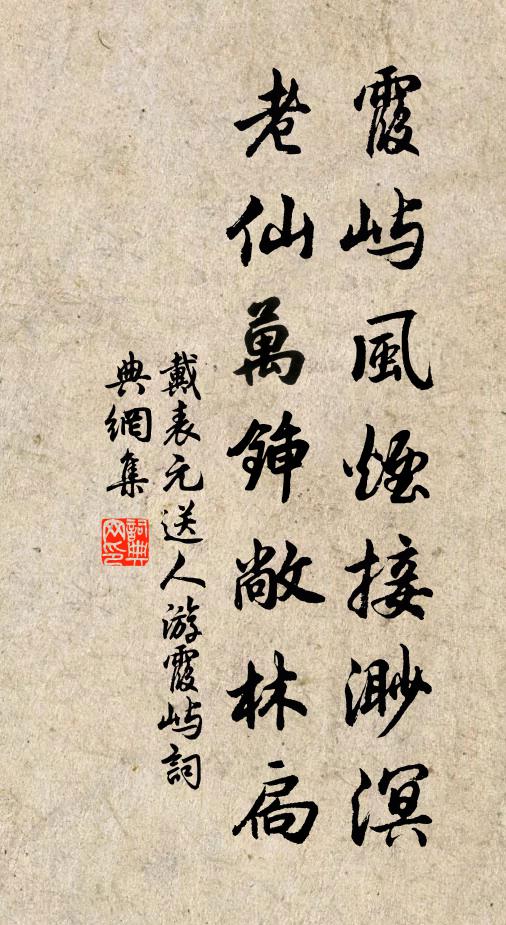 霞屿風煙接渺溟
老仙萬鍾敞林扃
戴表元送人游霞屿詞
典網集
詞典網印